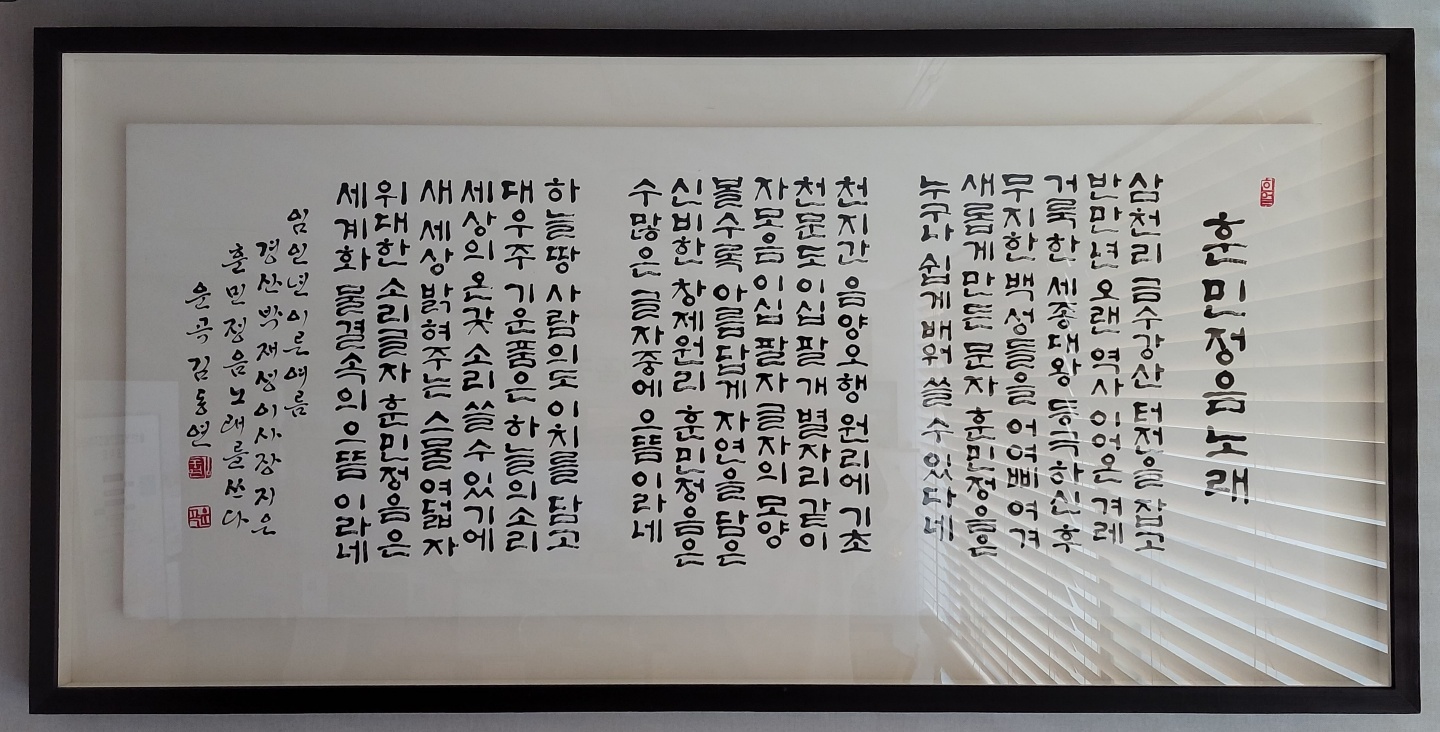 훈민정음노래
삼천리 금수강산 터전을 잡고
반만년 오랜 역사 이어온 겨레
거룩한 세종대왕 등극하신 후
무지한 백성들을 어여삐 여겨
새롭게 만든 문자 훈민정음은
누구나 쉽게 배워 쓸 수 있다네
천지간 음양오행 원리에 기초
천문도 이십팔개 별자리 같이
자모음 이십팔자 글자의 모양
볼수록 아름답게 자연을 담은
신비한 창제원리 훈민정음은
수많은 글자중에 으뜸이라네
하늘 땅 사람의 도 이치를 담고
대우주 기운품은 하늘의 소리
세상의 온갖 소리 쓸 수 있기에
새 세상 밝혀주는 스물여덟자
위대한 소리글자 훈민정음은
세계화 물결속의 으뜸이라네
임인년 이른여름
경산 박재성이사장 지은
훈민정음노래를 쓰다
운곡 김동연